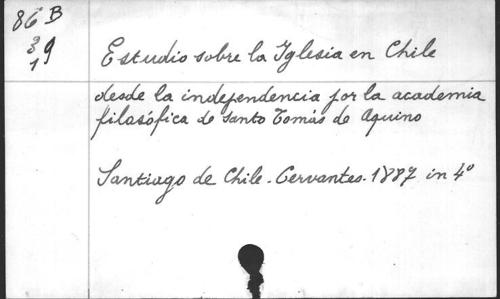 86 B
3 9
1
Estudio sobre la Iglesia en Chile
desde la independencia por la academia
filosófica de Santo Tomás de Aquino
Santiago de Chile - Cervantes - 1887 in 4º